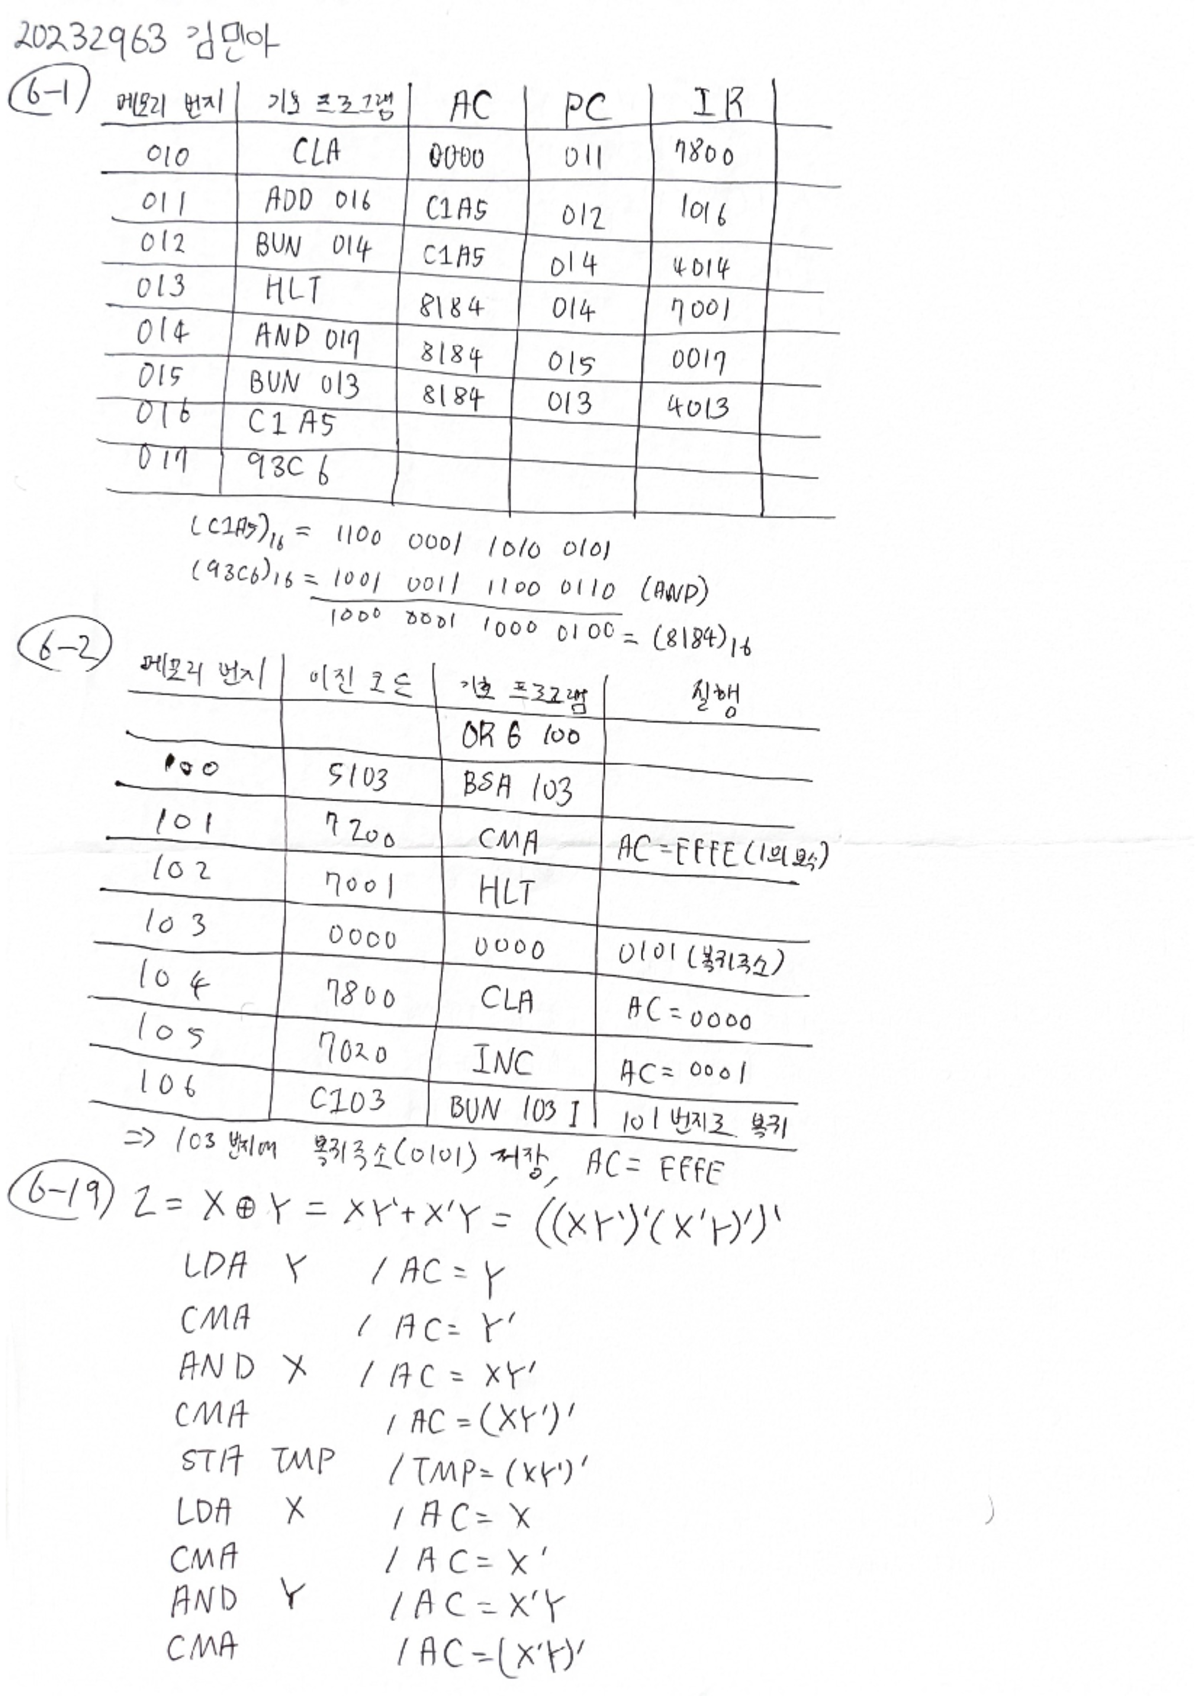 20232963 김민아
6-1
메모리 번지 기호 프로그램 AC PC IR
010 CLA 0000 011 7800
011 ADD 016 C1A5 012 1016
012 BUN 014 C1A5 014 4014
013 HLT 8184 014 7001
014 AND 017 8184 015 0017
015 BUN 013 8184 013 4013
016 C1A5
017 93C6
(C1A5)16 = 1100 0001 1010 0101
(93C6)16 = 1001 0011 1100 0110 (AND)
1000 0001 1000 0100 = (8184)16
6-2
메모리 번지 이진 코드 기호 프로그램 실행
ORG 100
100 5103 BSA 103
101 7200 CMA AC = FFFE (1의 보수)
102 7001 HLT
103 0000 0000 0101 (복귀주소)
104 7800 CLA AC = 0000
105 7020 INC AC = 0001
106 C103 BUN 103 I 101 번지로 복귀
=> 103 번지에 복귀주소(0101) 저장, AC = FFFE
6-19 Z = X ⊕ Y = XY' + X'Y = ((XY')'(X'Y)')'
LDA Y / AC = Y
CMA / AC = Y'
AND X / AC = XY'
CMA / AC = (XY')'
STA TMP / TMP = (XY')'
LDA X / AC = X
CMA / AC = X'
AND Y / AC = X'Y
CMA / AC = (X'Y)'